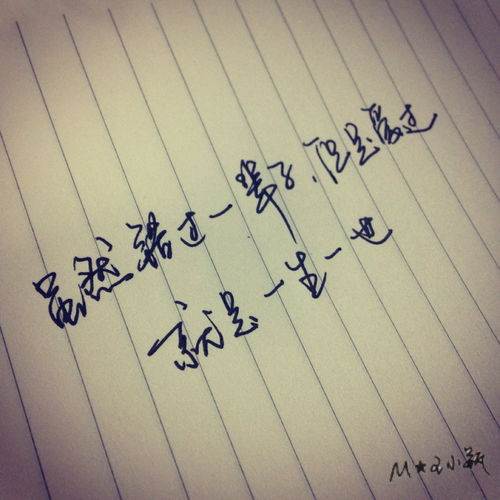 虽然错过一辈子,但是爱过
就是一生一世
M★王小颖